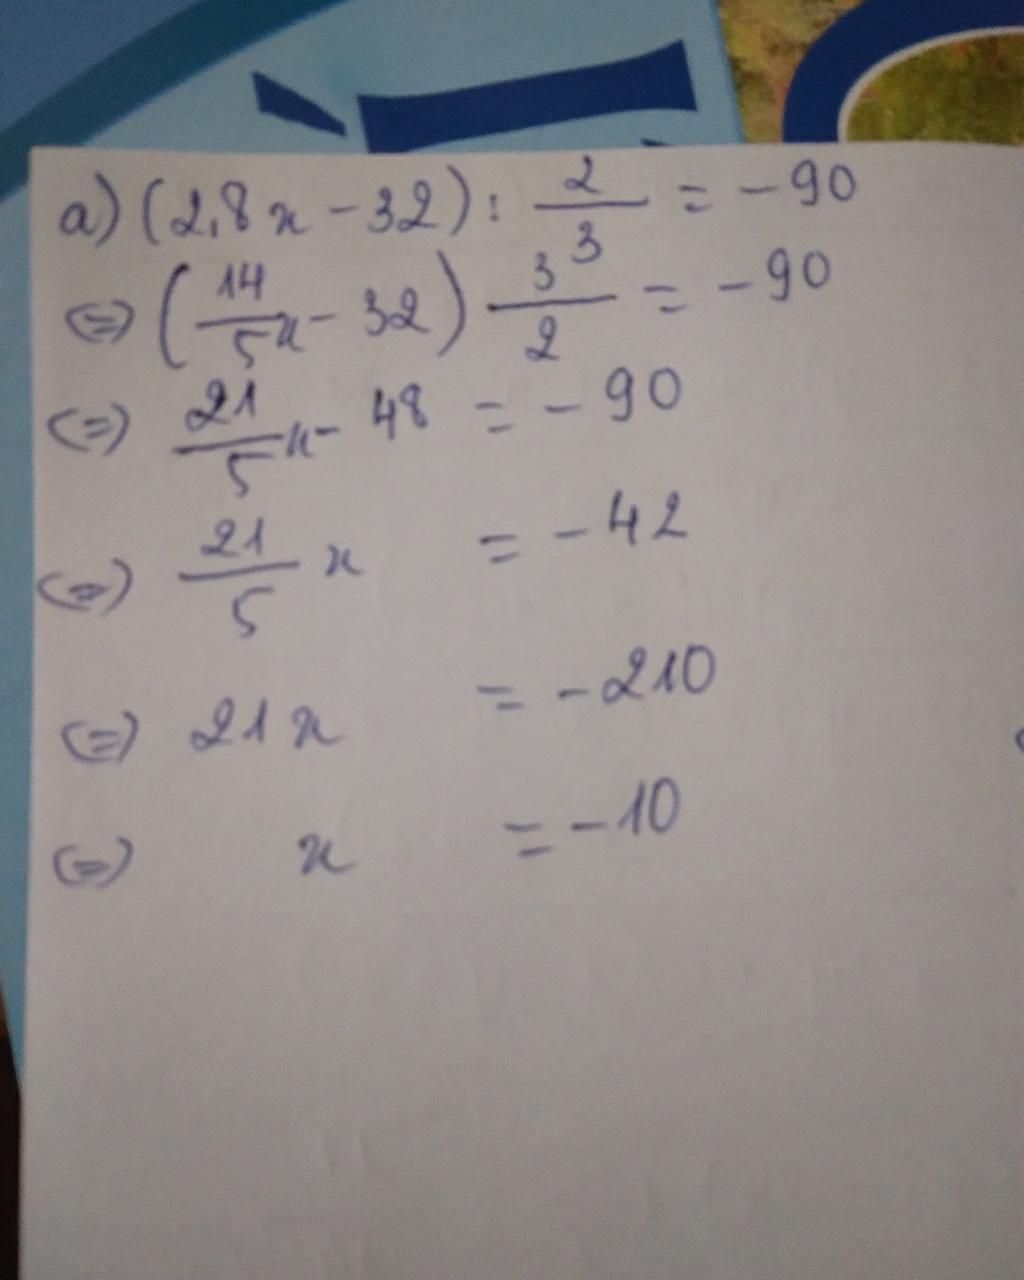 a) (2,8x - 32) : 2/3 = -90
(=) (14/5 x - 32) 3/2 = -90
(=) 21/5 x - 48 = -90
(=) 21/5 x = -42
(=) 21x = -210
(=) x = -10